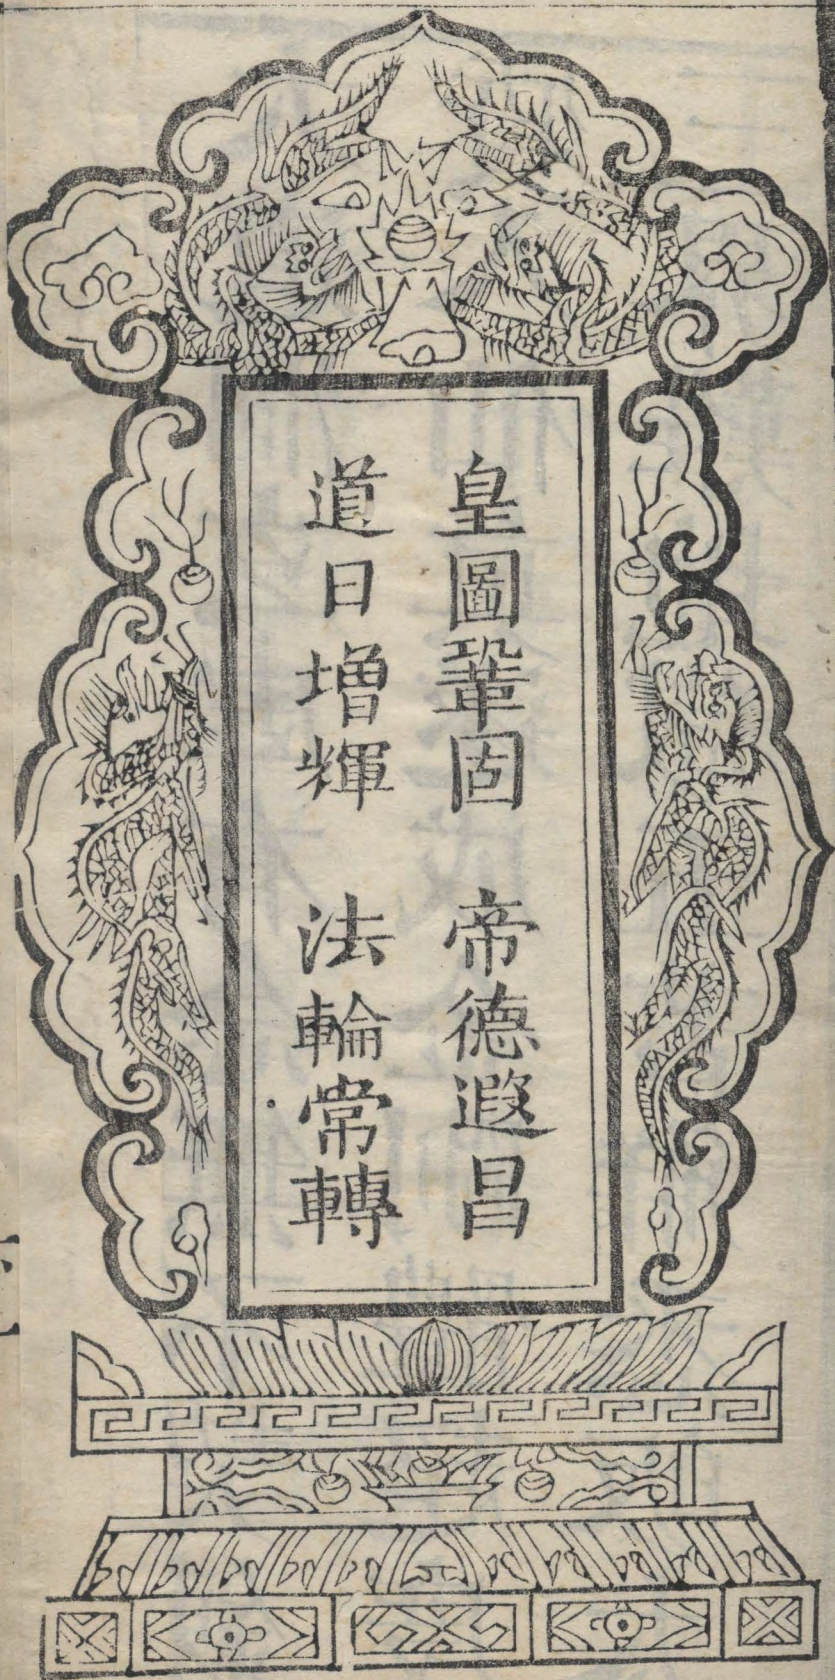 皇圖鞏固　帝德遐昌
道日增輝　法輪常轉